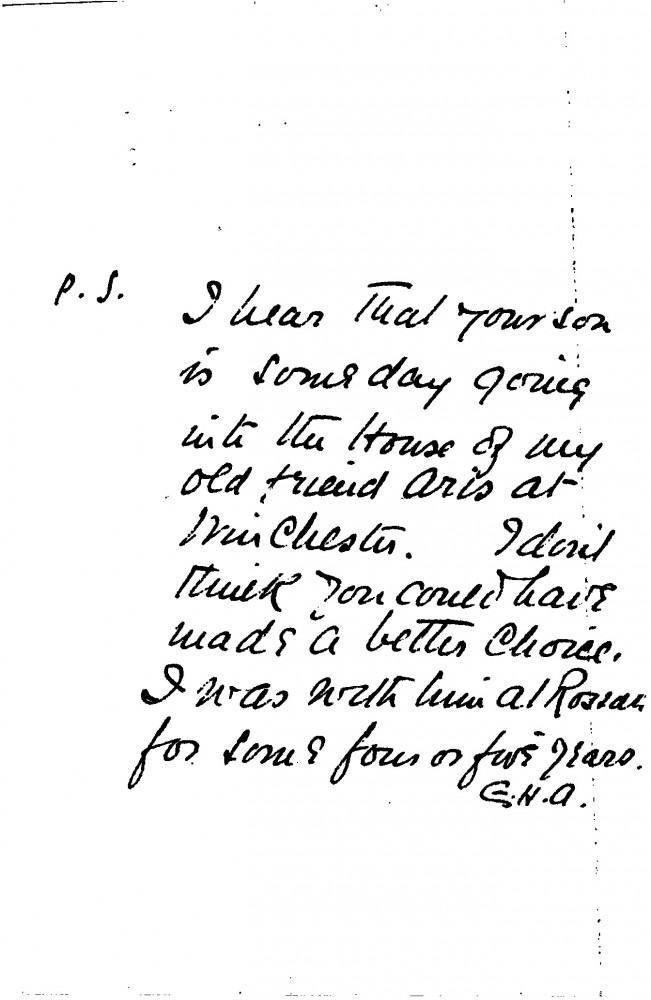 P.S. I hear that your son
is someday going
into the House of my
old friend Aris at
Winchester. I don't
think you could have
made a better choice.
I was with him at Rossall
for some four or five years.
E.H.A.